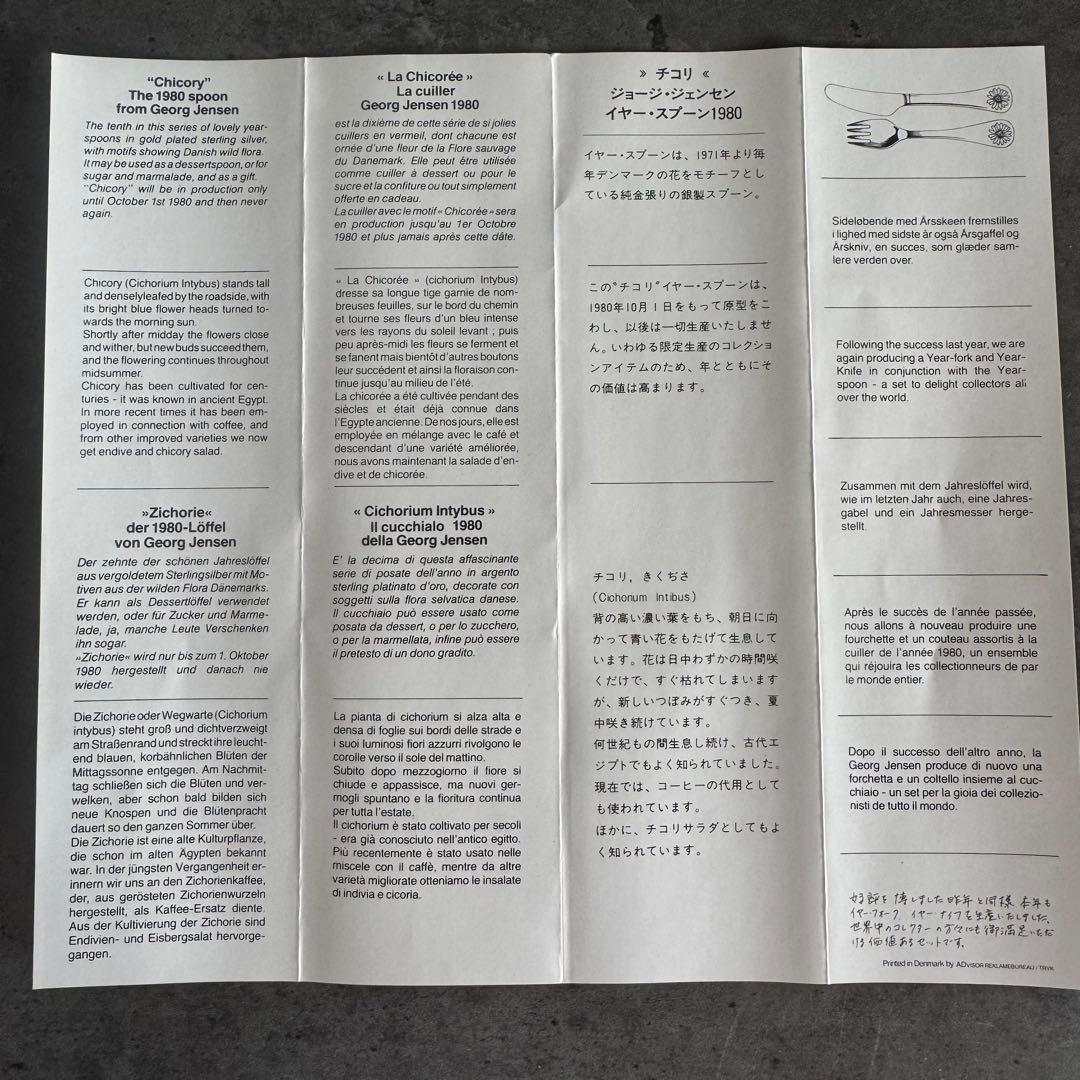 “Chicory”
The 1980 spoon
from Georg Jensen
The tenth in this series of lovely year-
spoons in gold plated sterling silver,
with motifs showing Danish wild flora.
It may be used as a dessertspoon, or for
sugar and marmalade, and as a gift.
“Chicory” will be in production only
until October 1st 1980 and then never
again.
Chicory (Cichorium Intybus) stands tall
and densely leafed by the roadside, with
its bright blue flower heads turned to-
wards the morning sun.
Shortly after midday the flowers close
and wither, but new buds succeed them,
and the flowering continues throughout
midsummer.
Chicory has been cultivated for cen-
turies - it was known in ancient Egypt.
In more recent times it has been em-
ployed in connection with coffee, and
from other improved varieties we now
get endive and chicory salad.
»Zichorie«
der 1980-Löffel
von Georg Jensen
Der zehnte der schönen Jahreslöffel
aus vergoldetem Sterlingsilber mit Mo-
tiven aus der wilden Flora Dänemarks.
Er kann als Dessertlöffel verwendet
werden, oder für Zucker und Marme-
lade, ja, manche Leute Verschenken
ihn sogar.
»Zichorie« wird nur bis zum 1. Oktober
1980 hergestellt und danach nie
wieder.
Die Zichorie oder Wegwarte (Cichorium
intybus) steht groß und dichtverzweigt
am Straßenrand und streckt ihre leucht-
end blauen, korbähnlichen Blüten der
Mittagssonne entgegen. Am Nachmit-
tag schließen sich die Blüten und ver-
welken, aber schon bald bilden sich
neue Knospen und die Blütenpracht
dauert so den ganzen Sommer über.
Die Zichorie ist eine alte Kulturpflanze,
die schon im alten Ägypten bekannt
war. In der jüngsten Vergangenheit er-
innern wir uns an den Zichorienkaffee,
der, aus gerösteten Zichorienwurzeln
hergestellt, als Kaffee-Ersatz diente.
Aus der Kultivierung der Zichorie sind
Endivien- und Eisbergsalat hervorge-
gangen.
« La Chicorée »
La cuiller
Georg Jensen 1980
est la dixième de cette série de si jolies
cuillers en vermeil, dont chacune est
ornée d'une fleur de la Flore sauvage
du Danemark. Elle peut être utilisée
comme cuiller à dessert ou pour le
sucre et la confiture ou tout simplement
offerte en cadeau.
La cuiller avec le motif « Chicorée » sera
en production jusqu'au 1er Octobre
1980 et plus jamais après cette date.
« La Chicorée » (cichorium Intybus)
dresse sa longue tige garnie de nom-
breuses feuilles, sur le bord du chemin
et tourne ses fleurs d'un bleu intense
vers les rayons du soleil levant ; puis
peu après-midi les fleurs se ferment et
se fanent mais bientôt d'autres boutons
leur succédent et ainsi la floraison con-
tinue jusqu'au milieu de l'été.
La chicorée a été cultivée pendant des
siècles et était déjà connue dans
l'Egypte ancienne. De nos jours, elle est
employée en mélange avec le café et
descendant d'une variété améliorée,
nous avons maintenant la salade d'en-
dive et de chicorée.
« Cichorium Intybus »
Il cucchialo 1980
della Georg Jensen
E' la decima di questa affascinante
serie di posate dell'anno in argento
sterling platinato d'oro, decorate con
soggetti sulla flora selvatica danese.
Il cucchiaio può essere usato come
posata da dessert, o per lo zucchero,
o per la marmellata, infine può essere
il pretesto di un dono gradito.
La pianta di cichorium si alza alta e
densa di foglie sui bordi delle strade e
i suoi luminosi fiori azzurri rivolgono le
corolle verso il sole del mattino.
Subito dopo mezzogiorno il fiore si
chiude e appassisce, ma nuovi ger-
mogli spuntano e la fioritura continua
per tutta l'estate.
Il cichorium è stato coltivato per secoli
- era già conosciuto nell'antico egitto.
Più recentemente è stato usato nelle
miscele con il caffè, mentre da altre
varietà migliorate otteniamo le insalate
di indivia e cicoria.
» チコリ «
ジョージ・ジェンセン
イヤー・スプーン1980
イヤー・スプーンは、1971年より毎
年デンマークの花をモチーフとし
ている純金張りの銀製スプーン。
この“チコリ”イヤー・スプーンは、
1980年10月1日をもって原型をこ
わし、以後は一切生産いたしませ
ん。いわゆる限定生産のコレクショ
ンアイテムのため、年とともにそ
の価値は高まります。
チコリ, きくぢさ
(Cichonum Intibus)
背の高い濃い葉をもち、朝日に向
かって青い花をもたげて生息して
います。花は日中わずかの時間咲
くだけで、すぐ枯れてしまいます
が、新しいつぼみがすぐつき、夏
中咲き続けています。
何世紀もの間生息し続け、古代エ
ジプトでもよく知られていました。
現在では、コーヒーの代用として
も使われています。
ほかに、チコリサラダとしてもよ
く知られています。
Sideløbende med Årsskeen fremstilles
i lighed med sidste år også Årsgaffel og
Årskniv, en succes, som glæder sam-
lere verden over.
Following the success last year, we are
again producing a Year-fork and Year-
Knife in conjunction with the Year-
spoon - a set to delight collectors all
over the world.
Zusammen mit dem Jahreslöffel wird,
wie im letzten Jahr auch, eine Jahres-
gabel und ein Jahresmesser herge-
stellt.
Après le succès de l'année passée,
nous allons à nouveau produire une
fourchette et un couteau assortis à la
cuiller de l'année 1980, un ensemble
qui réjouira les collectionneurs de par
le monde entier.
Dopo il successo dell'altro anno, la
Georg Jensen produce di nuovo una
forchetta e un coltello insieme al cuc-
chiaio - un set per la gioia dei collezio-
nisti di tutto il mondo.
好評を博しました昨年と同様 本年も
イヤーフォーク イヤーナイフを生産いたしました。
世界中のコレクターの方々にも御満足いただ
ける価値あるセットです。
Printed in Denmark by ADVISOR REKLAMEBUREAU / TRYK